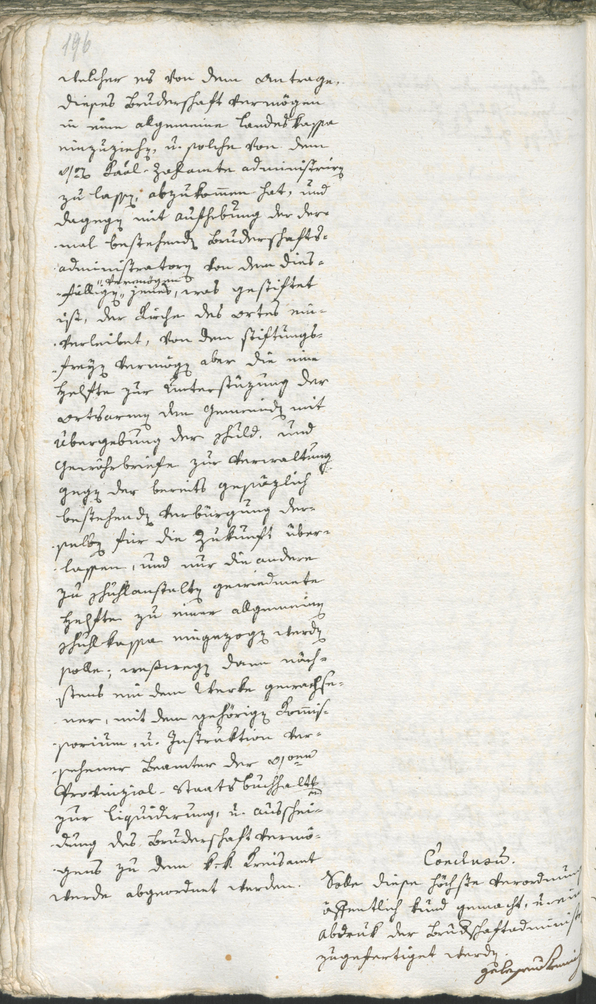 196
welcher es von dem Antrage,
dieses Bruderschaft Vermögen
in eine allgemeine Landeskassa
einzuziehen, u. solche von dem
Kaal-Zahlamte administriren
zu lassen, abzukommen hat, und
dagegen mit Aufhebung der der-
mal bestehenden Bruderschafts-
administratoren von dem dies-
Vermögen
fälligen jenes, was gestiftet
ist, der Kirche des Ortes ein-
verleibet, von dem stiftungs-
freyen Vermögen aber die eine
Helfte zur Unterstüzung der
Ortsarmen den Gemeinden mit
Übergebung der Schuld- und
Gewährbriefe zur Verwaltung
gegen der bereits gesezlich
bestehenden Verbürgung der-
selben für die Zukunft über-
lassen, und nur die andere
zu Schuhlanstalten gewiedmete
Helfte zu einer allgemeinen
Schuhlkassa eingezogen werden
solle; weßwegen dann näch-
stens ein dem Werke gewachse-
ner, mit dem gehörigen Komis-
sorium, u. Instruktion ver-
sehener Beamter der
Provinzial-Staatsbuchhaltung
zur Liquidirung, u. Ausschei-
dung des Bruderschaft Vermö-
gens zu dem k. k. Kreisamt
werde abgeordnet werden.
Conclusum.
Solle diese höchste Verordnung
öffentlich kund gemacht, u. ein
Abdruk der Brudschaftadminist
zugefertiget werden.